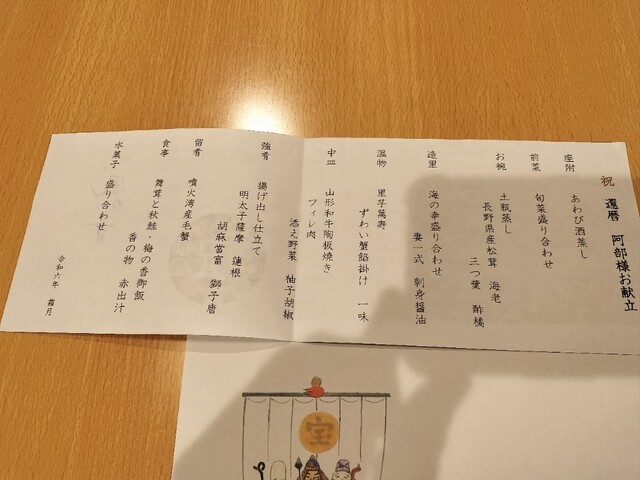 祝 還暦 阿部様お献立
座附 あわび酒蒸し
前菜 旬菜盛り合わせ
お椀 土瓶蒸し 三つ葉 酢橘
長野県産松茸 海老
造里 海の幸盛り合わせ
妻一式 刺身醤油
温物 里芋萬寿
ずわい蟹餡掛け 一味
中皿 山形和牛陶板焼き
フィレ肉
添え野菜 柚子胡椒
強肴 揚げ出し仕立て
明太子薩摩 蓮根
胡麻當富 獅子唐
留肴 噴火湾産毛蟹
食事 舞茸と秋鮭・梅の香御飯
香の物 赤出汁
水菓子 盛り合わせ
令和六年 霜月
宝